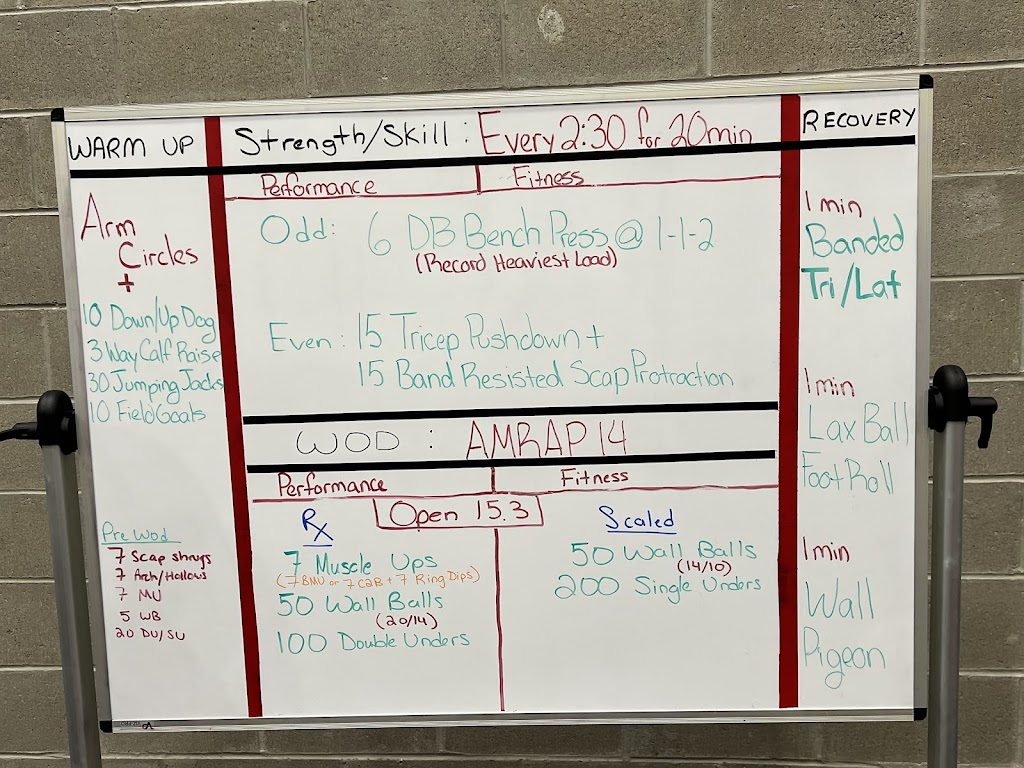 WARM UP
Arm
Circles
+
10 Down/Up Dog
3 Way Calf Raise
30 Jumping Jacks
10 Field Goals
Pre Wod
7 Scap shrugs
7 Arch/Hollows
7 MU
5 WB
20 DU/SU
Strength/Skill : Every 2:30 for 20min
Performance
Fitness
Odd: 6 DB Bench Press @ 1-1-2
(Record Heaviest Load)
Even: 15 Tricep Pushdown +
15 Band Resisted Scap Protraction
WOD : AMRAP 14
Performance
Fitness
Open 15.3
Rx
7 Muscle Ups
(7 BMU or 7 C2B + 7 Ring Dips)
50 Wall Balls
(20/14)
100 Double Unders
Scaled
50 Wall Balls
(14/10)
200 Single Unders
RECOVERY
1 min
Banded
Tri/Lat
1 min
Lax Ball
Foot Roll
1 min
Wall
Pigeon